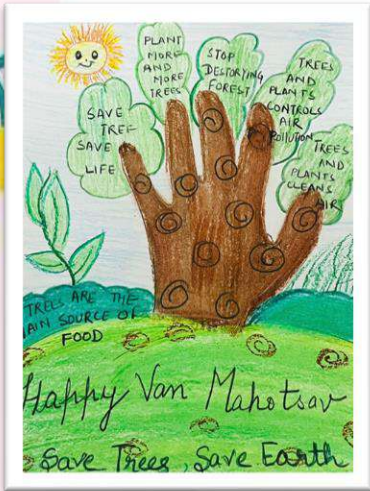 SAVE
TREE
SAVE
LIFE
PLANT
MORE
AND
MORE
TREES
STOP
DESTORYING
FOREST
TREES
AND
PLANTS
CONTROLS
AIR
Pollution
TREES
AND
PLANTS
CLEANS
AIR
TREES ARE THE
AIN SOURCE OF
FOOD
Happy Van Mahotsav
Save Trees, Save Earth